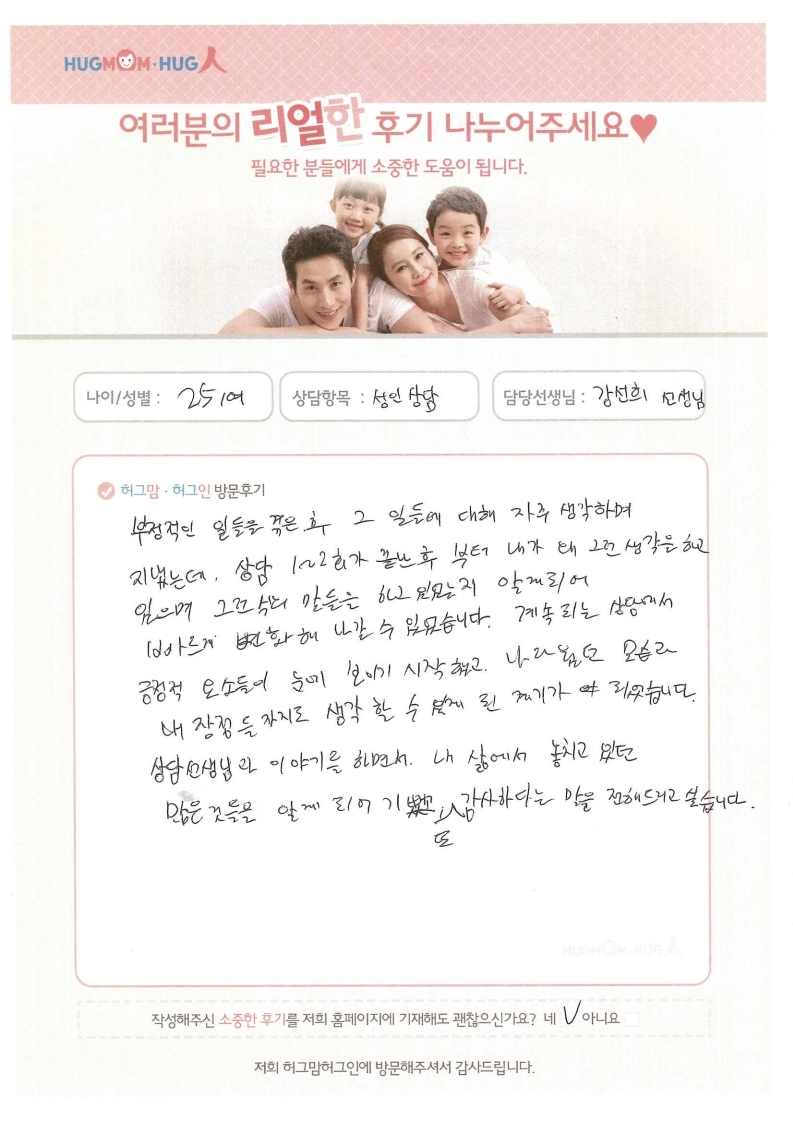 HUGMOM·HUG人
여러분의 리얼한 후기 나누어주세요♥
필요한 분들에게 소중한 도움이 됩니다.
나이/성별 : 25/여 상담항목 : 성인상담 담당선생님 : 강선희 선생님
허그맘·허그인 방문후기
부정적인 일들을 겪은 후 그 일들에 대해 자주 생각하며
지냈는데, 상담 1~2회가 끝난 후 부터 내가 왜 그런 생각을 하고
있으며 그런 식의 말들을 하고 있었는지 알게되어
변화해 나갈 수 있었습니다. 계속되는 상담에서
긍정적 요소들이 눈에 보이기 시작했고, 모습과
내 장점들까지도 생각 할 수 있게 된 계기가 되었습니다.
상담선생님과 이야기를 하면서, 내 삶에서 놓치고 있던
많은 것들을 알게 되어 감사하다는 말을 전해드리고 싶습니다.
또
작성해주신 소중한 후기를 저희 홈페이지에 기재해도 괜찮으신가요? 네 V 아니요
저희 허그맘허그인에 방문해주셔서 감사드립니다.